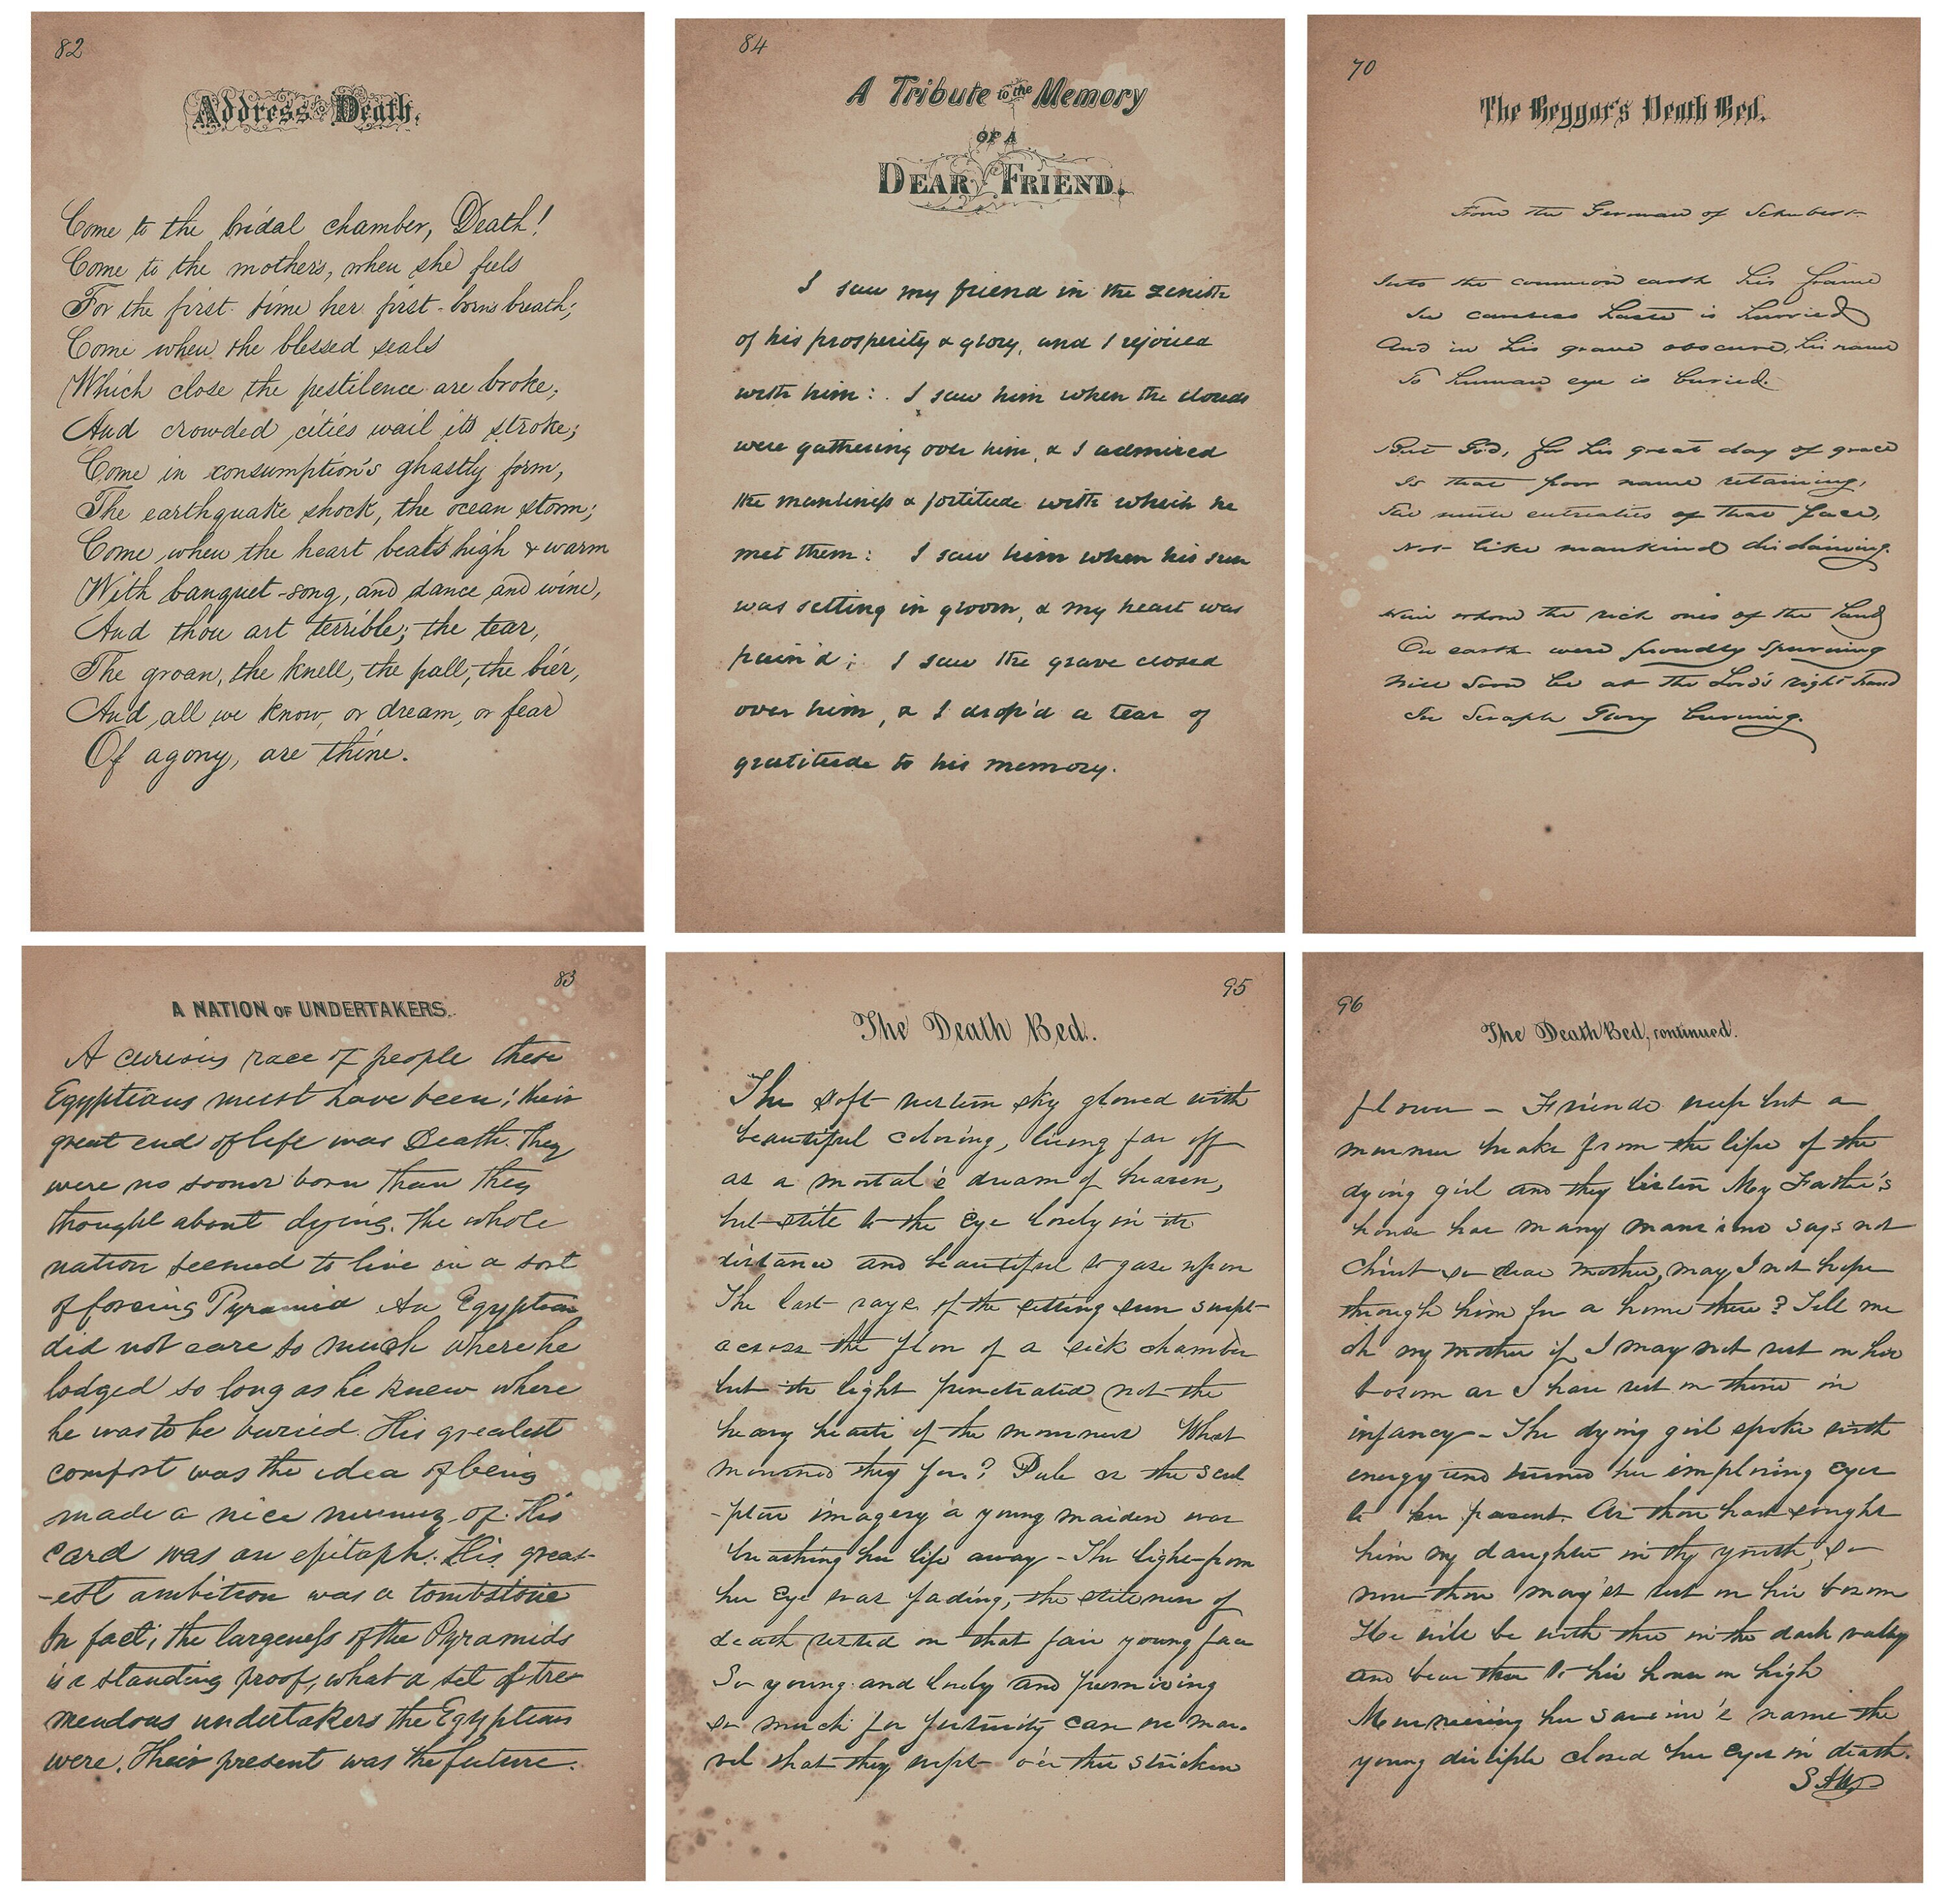 82
Address to Death.
Come to the bridal chamber, Death!
Come to the mother's, when she feels
For the first time her first-born's breath;
Come when the blessed seals
Which close the pestilence are broke;
And crowded cities wail its stroke;
Come in consumption's ghastly form,
The earthquake shock, the ocean storm;
Come when the heart beats high & warm
With banquet-song, and dance and wine,
And thou art terrible; the tear,
The groan, the knell, the pall, the bier,
And all we know, or dream, or fear
Of agony, are thine.
84
A Tribute to the Memory
OF A
DEAR FRIEND.
I saw my friend in the zenith
of his prosperity & glory, and I rejoiced
with him: I saw him when the clouds
were gathering over him, & I admired
the manliness & fortitude with which he
met them: I saw him when his sun
was setting in gloom, & my heart was
pain'd; I saw the grave closed
over him, & I drop'd a tear of
gratitude to his memory.
70
The Beggar's Death Bed.
From the German of Schubert
Into the common earth his frame
In careless haste is hurried
And in his grave obscure, his name
To human eye is buried.
But God, for his great day of grace
Is that poor name retaining,
The mute entreaties of that face,
Not like mankind disdaining.
Him whom the rich ones of the land
On earth were proudly spurning
Will soon be at the Lord's right hand
In Seraph Glory burning.
83
A NATION OF UNDERTAKERS.
A curious race of people these
Egyptians must have been; their
great end of life was Death. They
were no sooner born than they
thought about dying. The whole
nation seemed to live in a sort
of forcing Pyramid An Egyptian
did not care so much where he
lodged so long as he knew where
he was to be buried. His greatest
comfort was the idea of being
made a nice mummy of. His
card was an epitaph. His great-
-est ambition was a tombstone
In fact, the largeness of the Pyramids
is a standing proof, what a set of tre
mendous undertakers the Egyptians
were. Their present was the future.
95
The Death Bed.
The soft western sky glowed with
beautiful coloring, living far off
as a mortal's dream of heaven,
but still to the eye lovely in its
distance and beautiful to gaze upon
The last rays of the setting sun swept
across the floor of a sick chamber
but its light penetrated not the
heavy hearts of the mourners What
mourned they for? Pale as the scul
-ptor imagery a young maiden was
breathing her life away – The light from
her eye was fading, the stillness of
death rested on that fair young face
So young and lovely and promising
so much for futurity can we mar-
vel that they wept o'er the stricken
96
The Death Bed, continued.
flower – Friends weep but a
murmur breaks from the lips of the
dying girl and they listen My Father's
house has many mansions says not
Christ so dear mother, may I not hope
through him for a home there? Tell me
oh my mother if I may not rest on his
bosom as I have rest on thine in
infancy – The dying girl spoke with
energy and turned her imploring eyes
to her parent. As thou hast sought
him my daughter in thy youth, so
now thou may'st rest on his bosom
He will be with thee in the dark valley
and bear thee to his home on high
Murmuring her saviour's name the
young disciple closed her eyes in death.